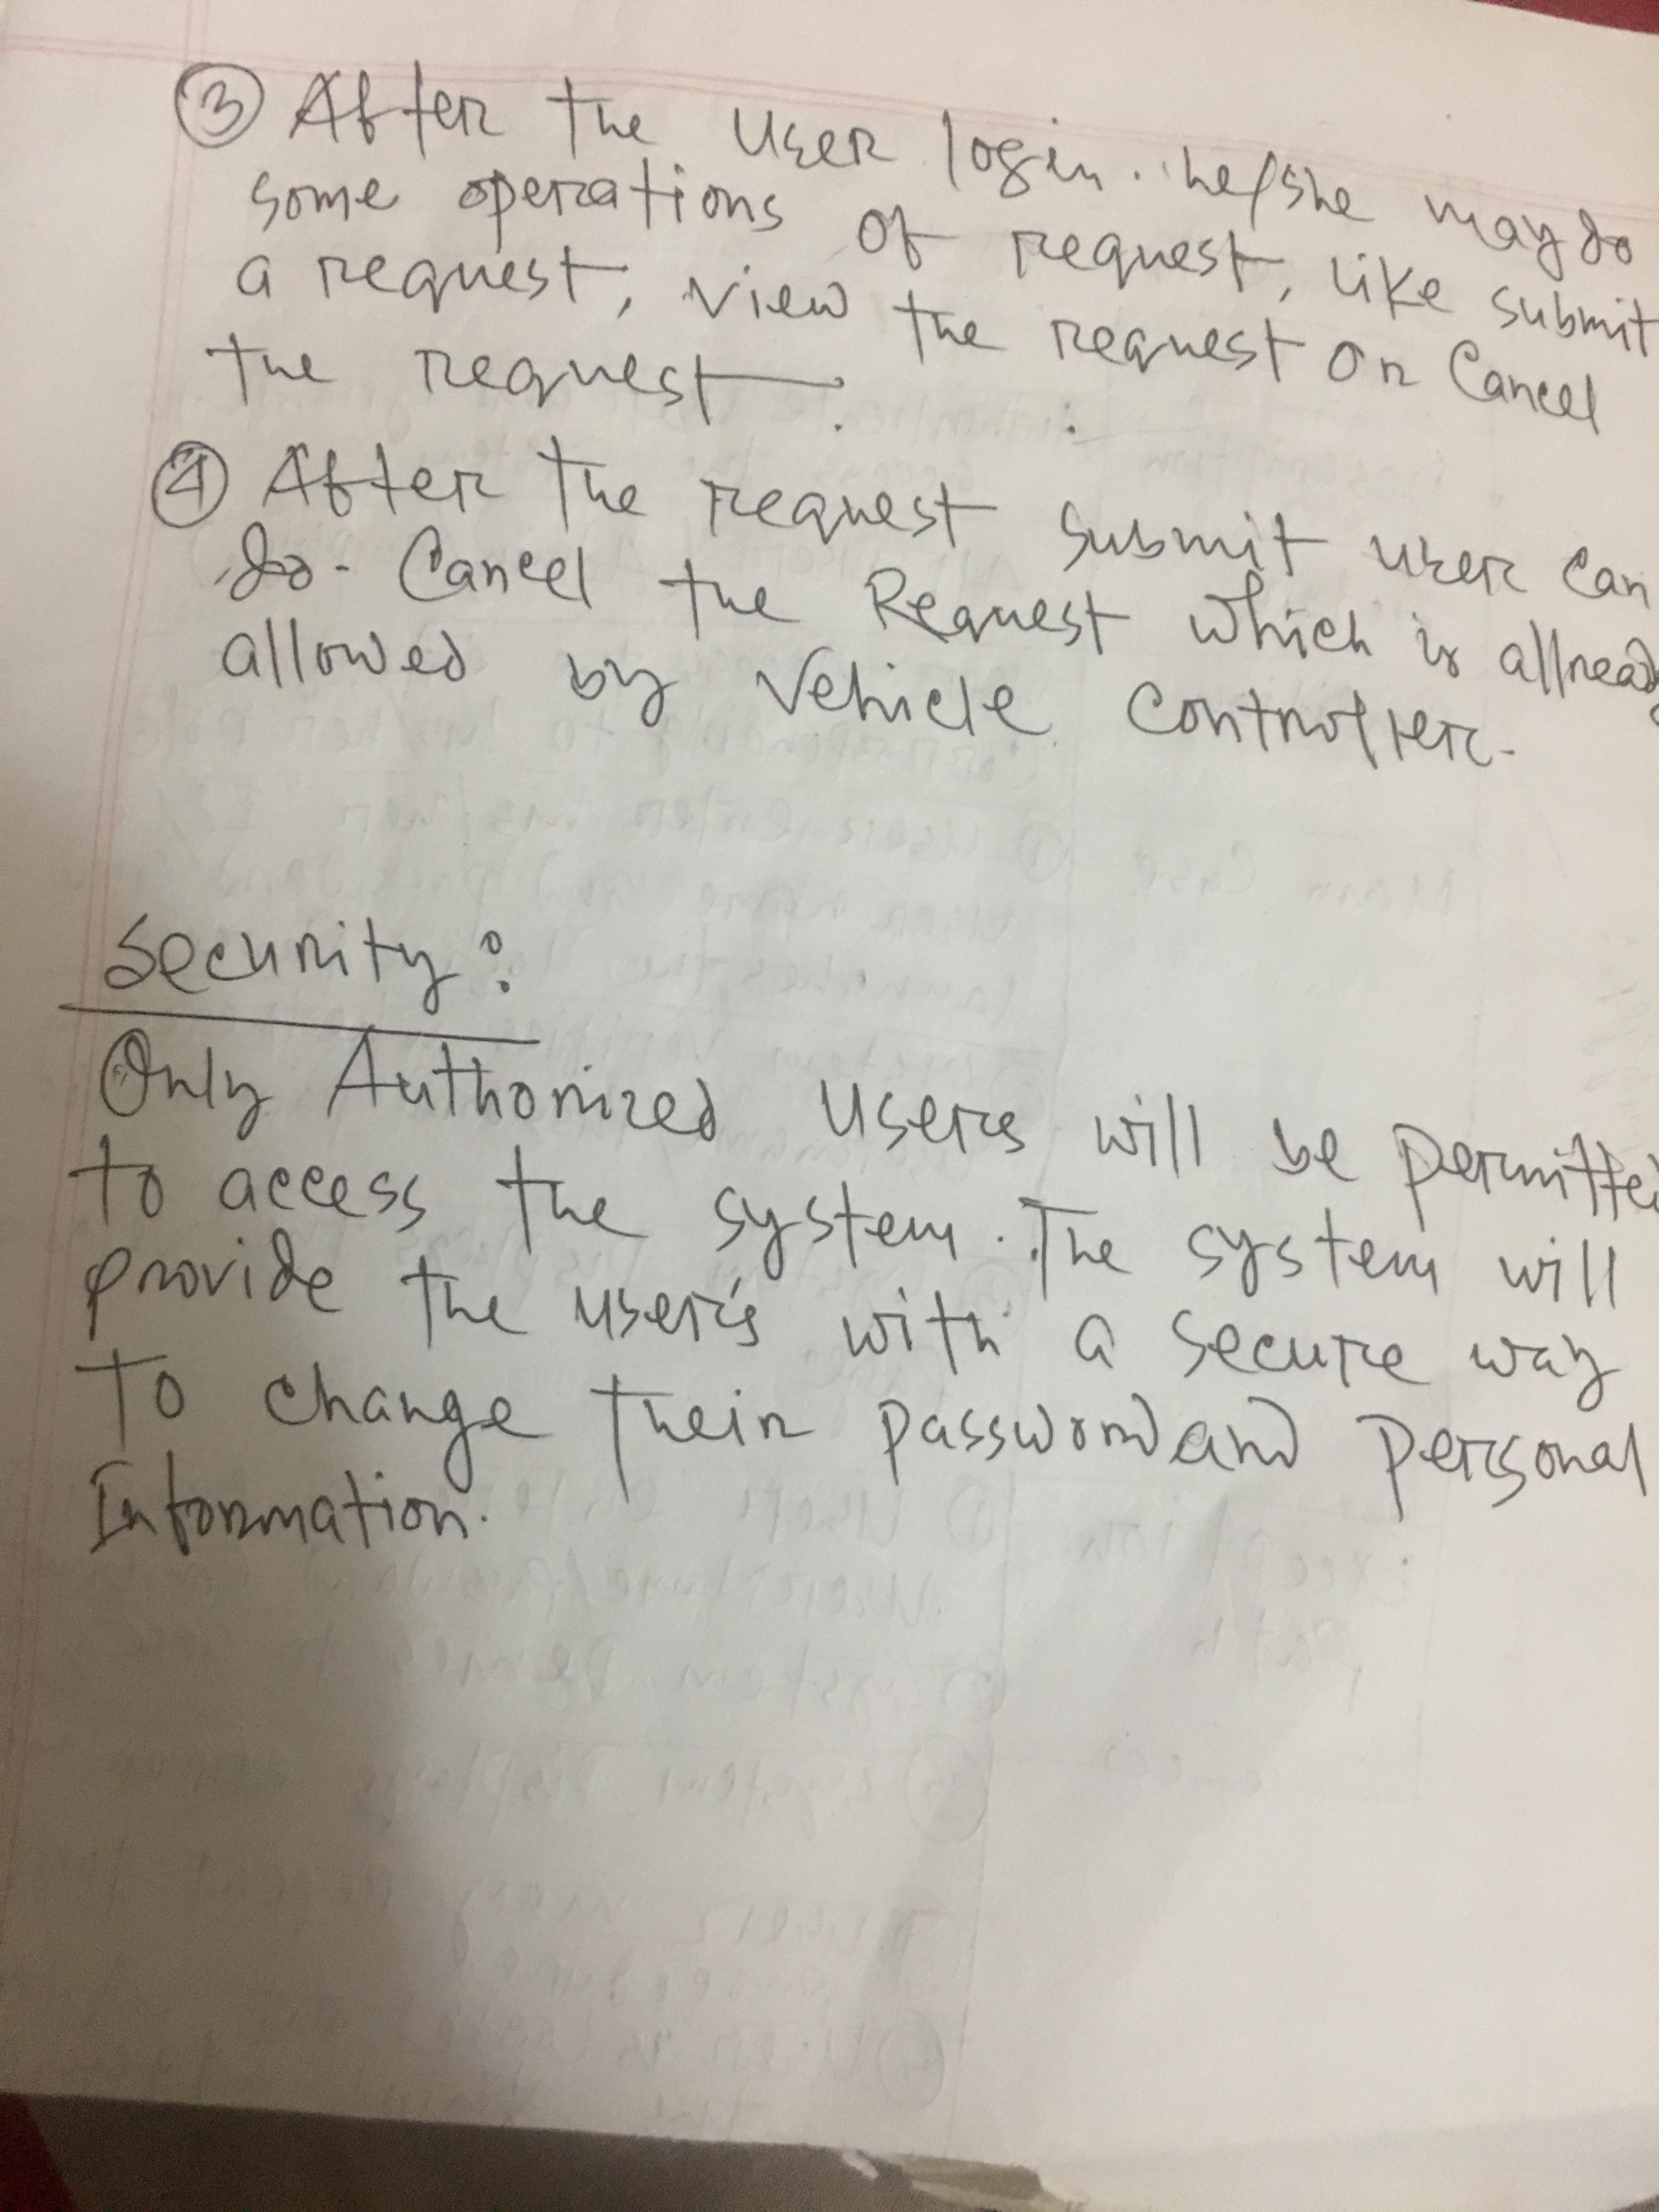 ③ After the User login. he/she may do
some operations of request, like submit
a request, view the request or Cancel
the request.
④ After the request submit user can
do - Cancel the Request which is allready
allowed by Vehicle Controller.
Security:
Only Authorized Users will be permitted
to access the system. The system will
provide the user's with a secure way
To change their password and personal
Information.